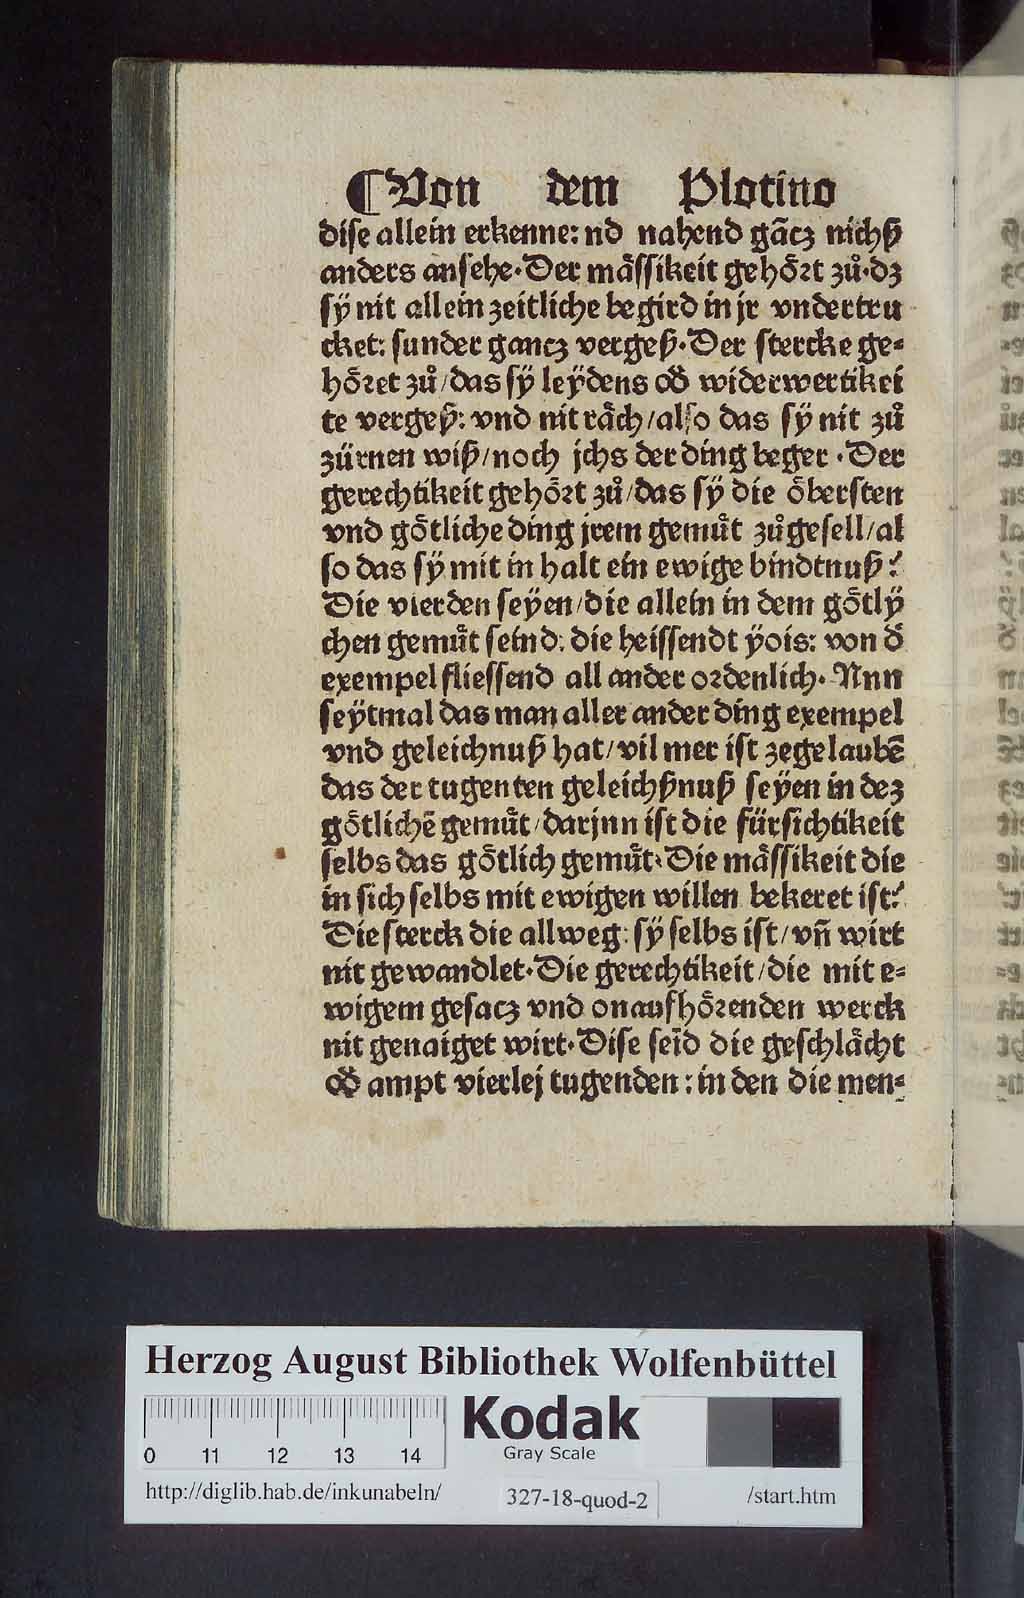 ¶Von dem Plotino
dise allein erkenne: nd nahend gãcz nichß
anders ansehe. Der mässikeit gehört zů. dz
sÿ nit allein zeitliche begird in jr vndertru
cket: sunder gancz vergeß. Der stercke ge⸗
höret zů/das sÿ leÿdens od̕ widerwertikei
te vergeß: vnd nit räch/also das sÿ nit zů
zürnen wiß/noch jchs der ding beger. Der
gerechtikeit gehört zů/das sÿ die öbersten
vnd götliche ding jrem gemuͤt zůgesell/al
so das sÿ mit in halt ein ewige bindtnuß?
Die vierden seÿen/die allein in dem götlÿ
chen gemuͤt seind: die heissendt ÿois: von d̕
exempel fliessend all ander ordenlich. Nnn
seÿtmal das man aller ander ding exempel
vnd geleichnuß hat/vil mer ist zegelaubẽ
das der tugenten geleichßnuß seÿen in dez
götlichẽ gemuͤt/darjnn ist die fürsichtikeit
selbs das götlich gemuͤt. Die mässikeit die
in sich selbs mit ewigen willen bekeret ist?
Die sterck die allweg: sÿ selbs ist/vñ wirt
nit gewandlet. Die gerechtikeit/die mit e⸗
wigem gesacz vnd onaufhörenden werck
nit genaiget wirt. Dise seīd die geschlächt
od̕ ampt vierlej tugenden: in den die men⸗
Herzog August Bibliothek Wolfenbüttel
Kodak
Gray Scale
0 11 12 13 14
http://diglib.hab.de/inkunabeln/ 327-18-quod-2 /start.htm